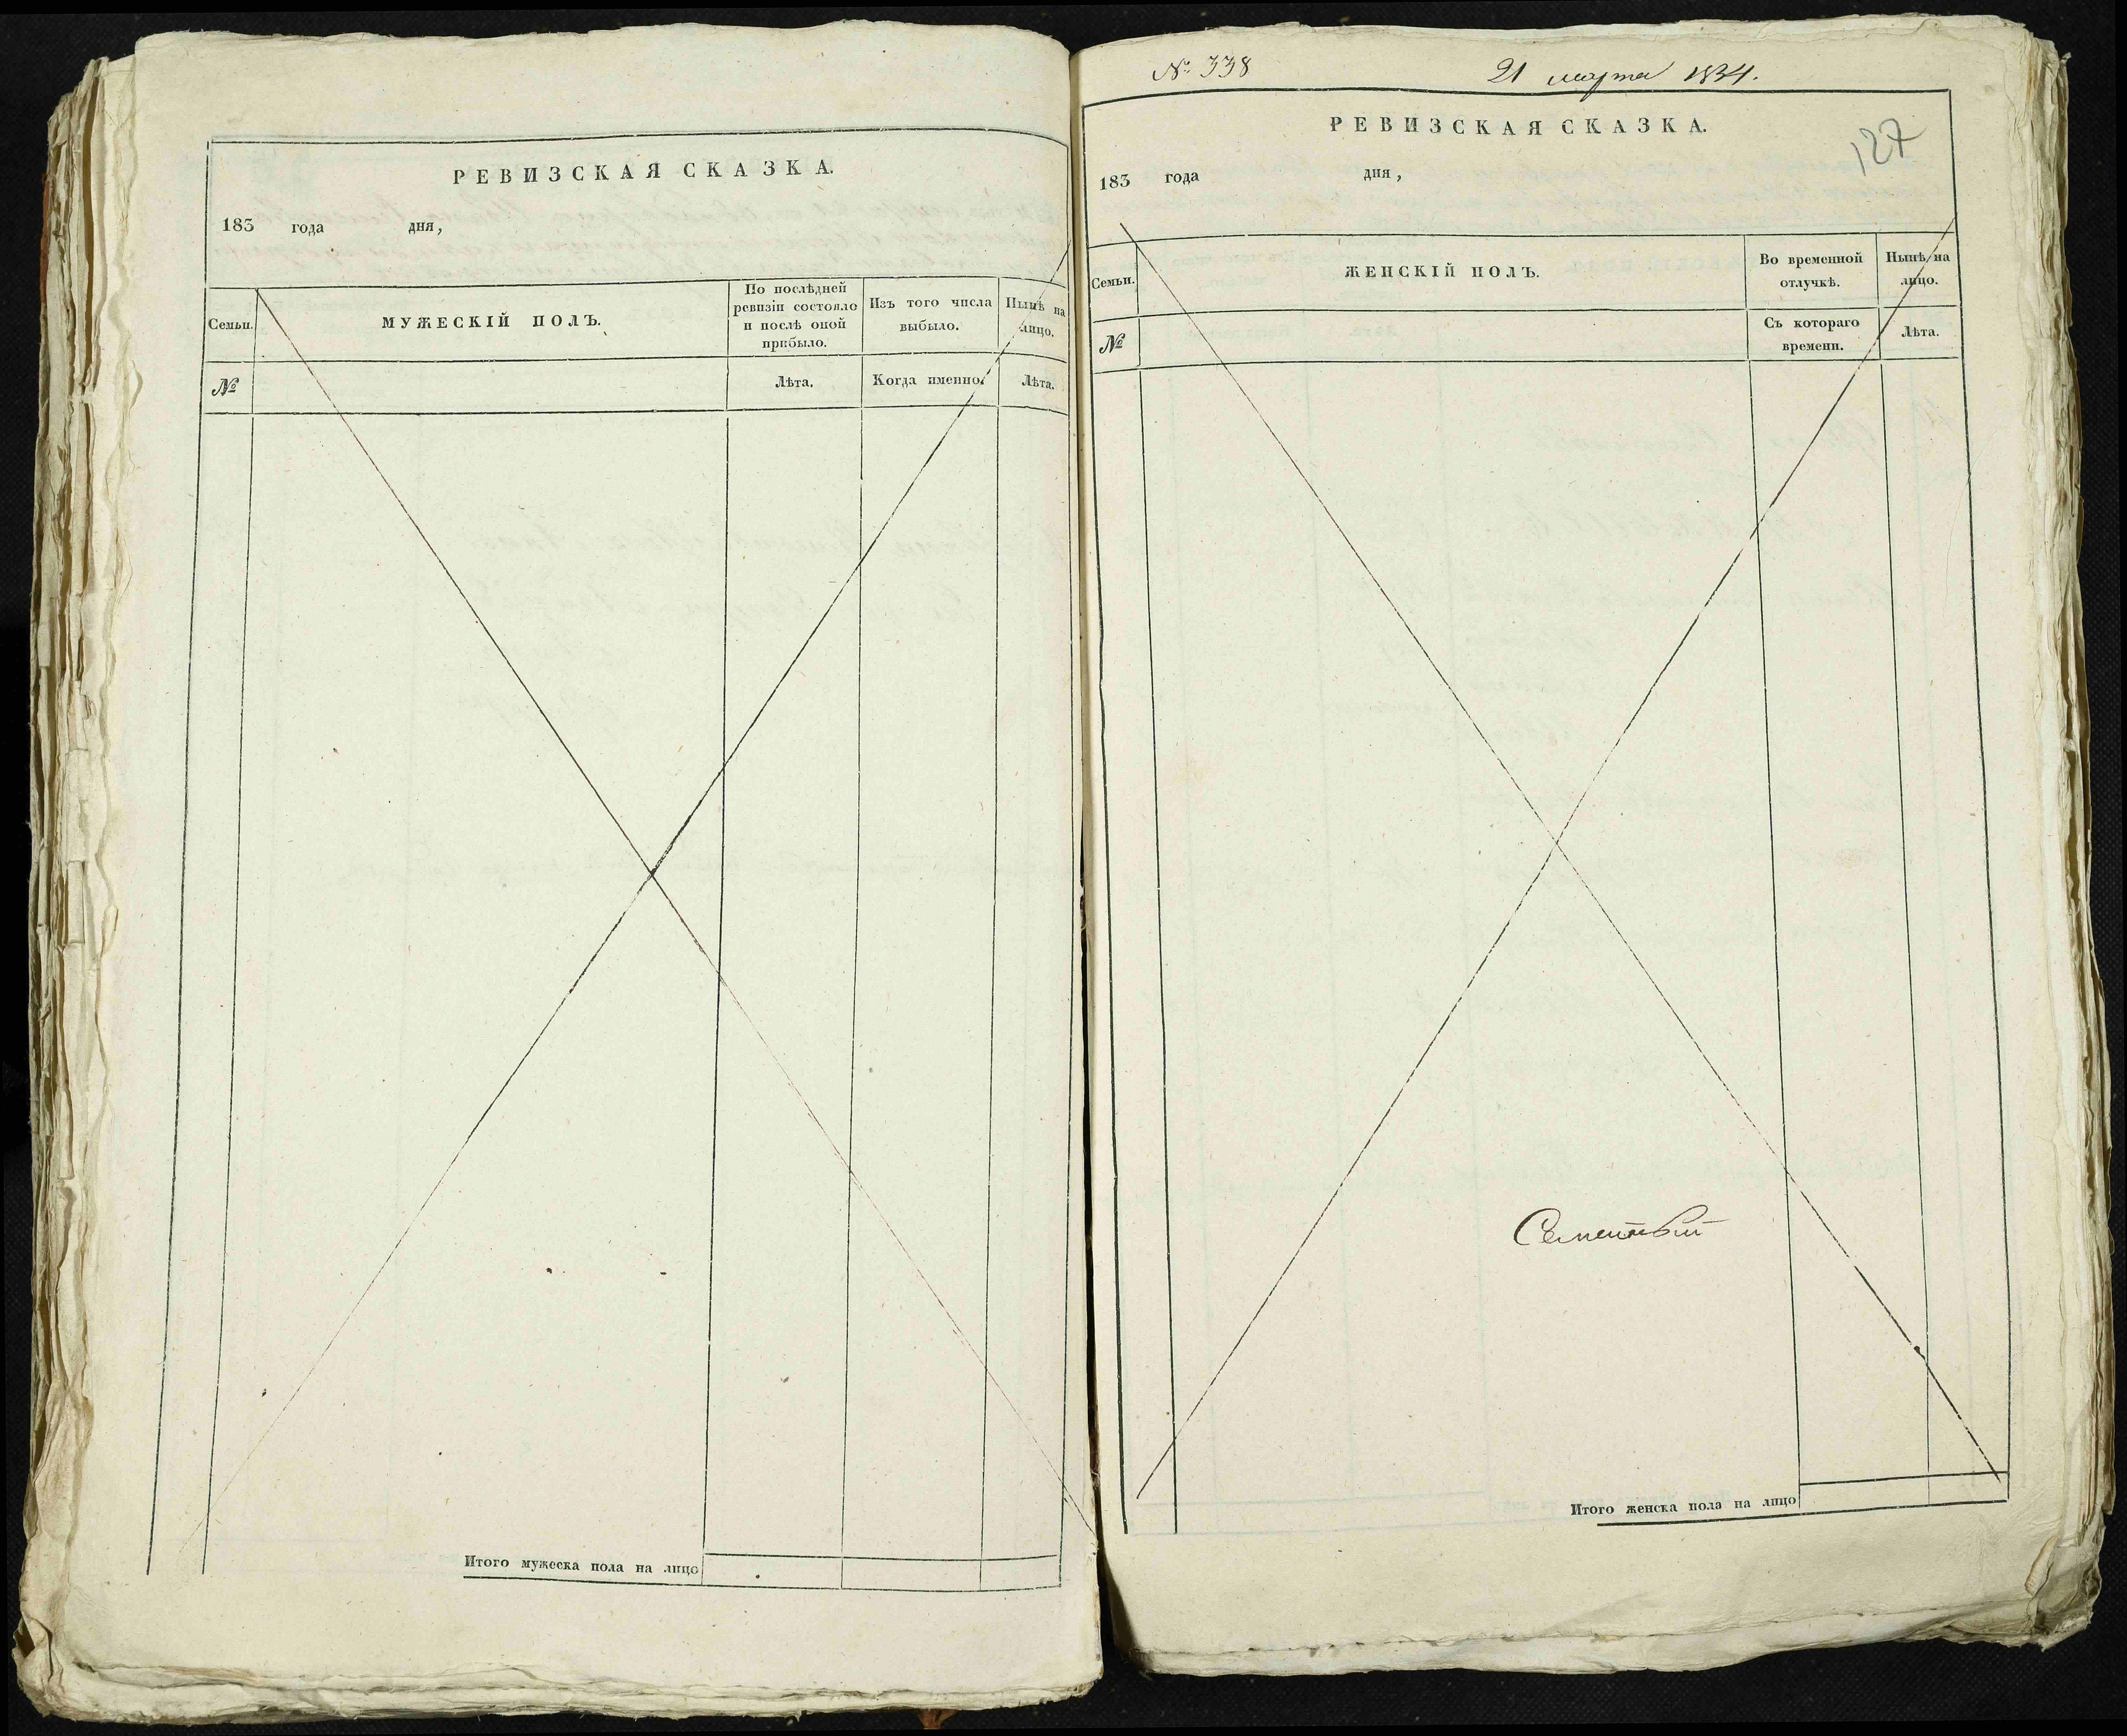 РЕВИЗСКАЯ СКАЗКА.
183 года дня,
Семьи.
МУЖЕСКІЙ ПОЛЪ.
По послѣдней
ревизіи состояло
и послѣ оной
прибыло.
Изъ того числа
выбыло.
Нынѣ на
лицо.
№
Лѣта.
Когда именно.
Лѣта.
Итого мужеска пола на лицо
№ 338
21 марта 1834.
РЕВИЗСКАЯ СКАЗКА.
127
183 года дня,
Семьи.
ЖЕНСКІЙ ПОЛЪ.
Во временной
отлучкѣ.
Нынѣ на
лицо.
№
Съ котораго
времени.
Лѣта.
Итого женска пола на лицо